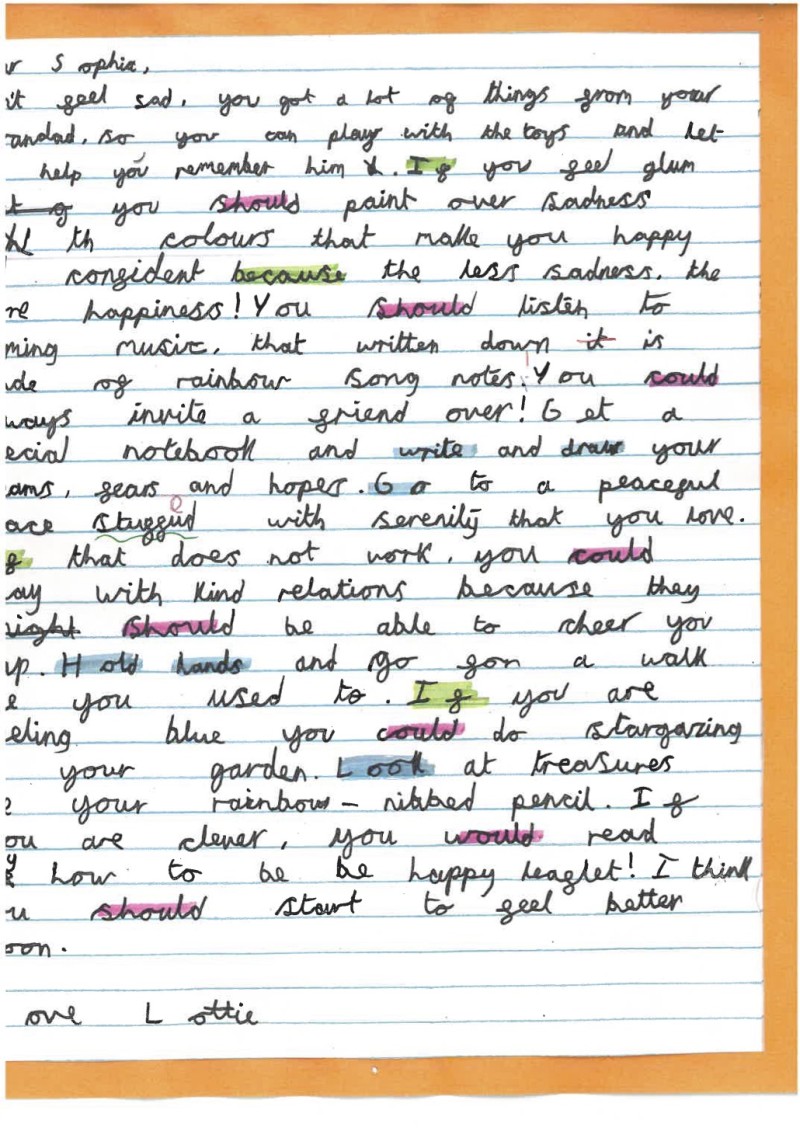 r Sophia,
it feel sad, you got a lot of things from your
andad, so you can play with the toys and let
help you remember him. If you feel glum
you should paint over sadness
th colours that make you happy
confident because the less sadness, the
re happiness! You should listen to
ming music, that written down it is
de of rainbow song notes. You could
ways invite a friend over! Get a
ecial notebook and write and draw your
ams, fears and hopes. Go to a peaceful
ace stuffud with serenity that you love.
f that does not work, you could
ay with kind relations because they
might should be able to cheer you
up. Hold hands and go for a walk
e you used to. If you are
eling blue you could do stargazing
your garden. Look at treasures
e your rainbow - nibbed pencil. If
ou are clever, you would read
my how to be be happy leaflet! I think
u should start to feel better
oon.
ove Lottie